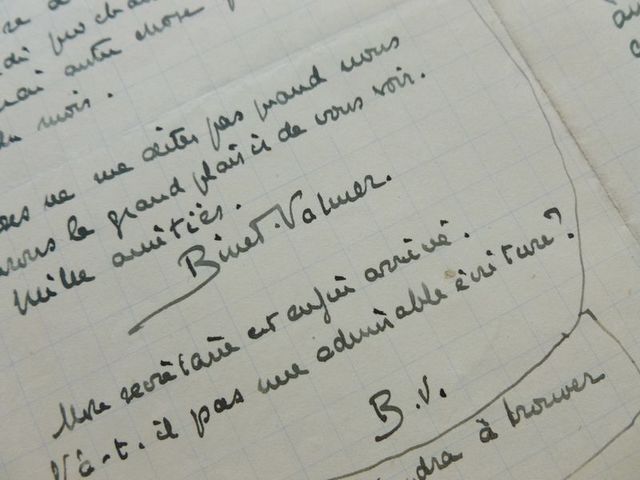 di prochain
autre chose
mois.
ne me dites pas quand nous
le grand plaisir de vous voir.
Mille amitiés.
Binet-Valmer.
Mon secrétaire est enfin arrivé.
N'a-t-il pas une admirable écriture?
B.V.
à trouver